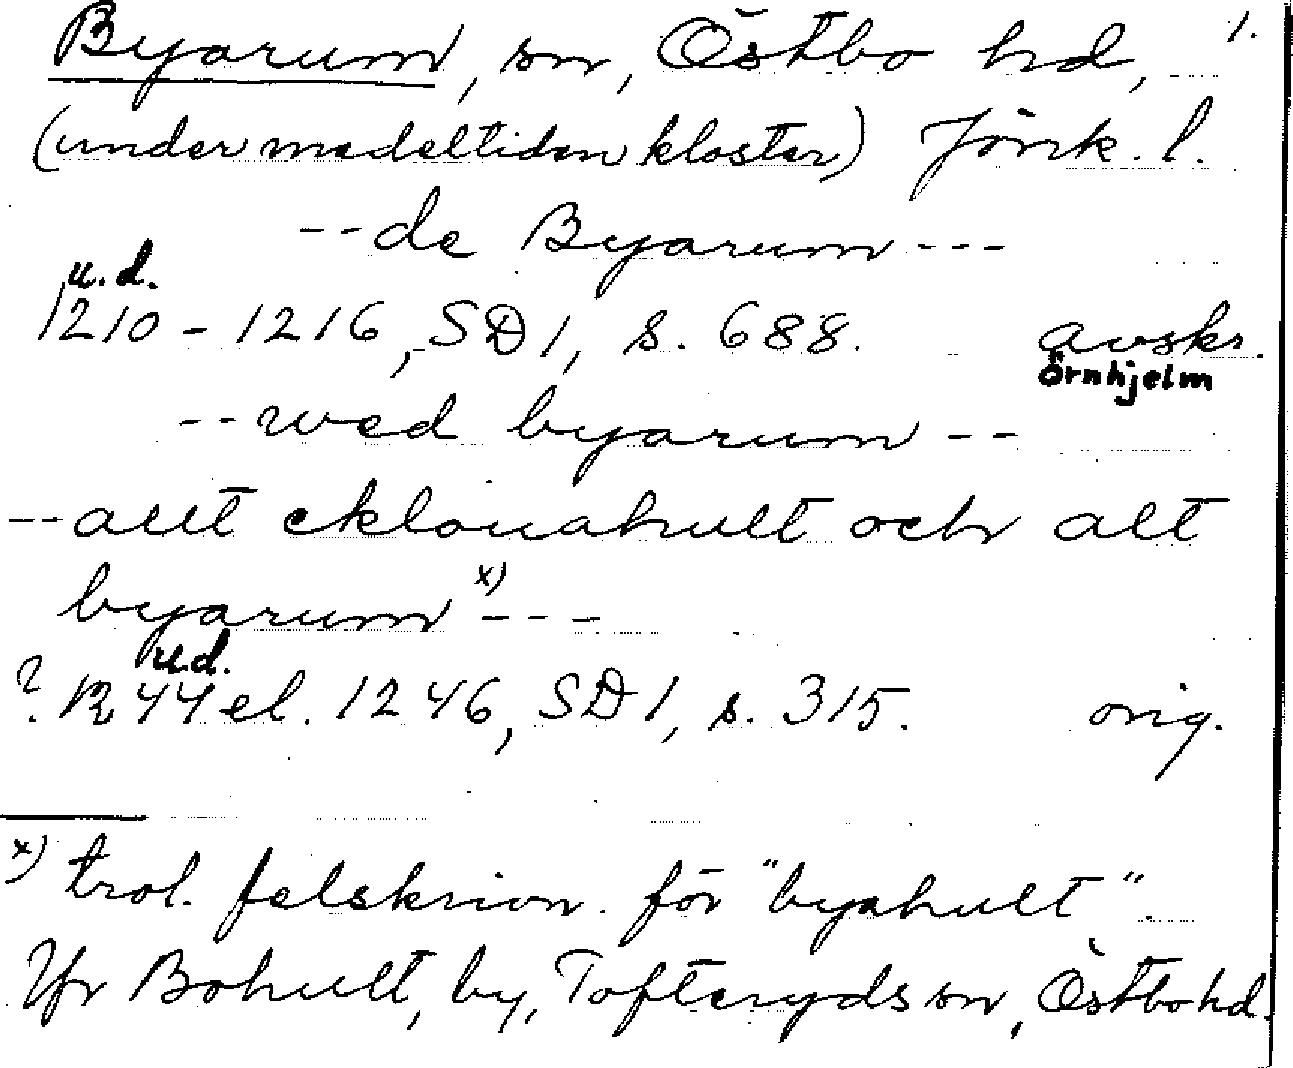 Byarum, sn, Östbo hd, 1.
(under medeltiden kloster) Jönk. l.
--de Byarum---
u.d.
1210-1216, SD1, s. 688. avskr.
Örnhjelm
--wed byarum--
--allt eklouahult och alt
byarum x) ---
u.d.
? 1244 el. 1246, SD1, s. 315. orig.
x) trol. felskrivn. för "byahult".
Jfr Bohult, by, Tofteryds sn, Östbo hd.